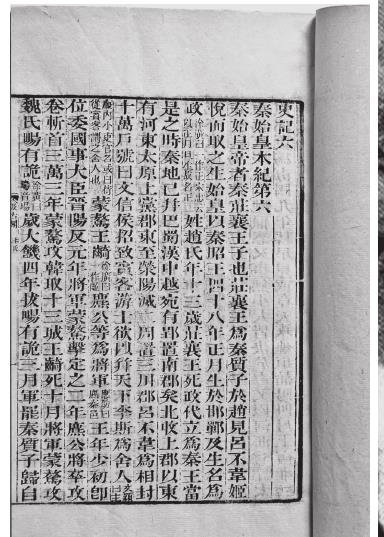 史記六
秦始皇本紀第六
秦始皇帝者秦莊襄王子也莊襄王爲秦質子於趙見呂不韋姬
悅而取之生始皇以秦昭王四十八年正月生於邯鄲及生名爲
政姓趙氏年十三歲莊襄王死政代立爲秦王當
是之時秦地已并巴蜀漢中越宛有郢置南郡矣北收上郡以東
有河東太原上黨郡東至滎陽滅二周置三川郡呂不韋爲相封
十萬戶號曰文信侯招致賓客游士欲以并天下李斯爲舍人
蒙驁王齮麃公等爲將軍王年少初卽
位委國事大臣晉陽反元年將軍蒙驁擊定之二年麃公將卒攻
卷斬首三萬三年蒙驁攻韓取十三城王齮死十月將軍蒙驁攻
魏氏暘有詭歲大饑四年拔暘有詭三月軍罷秦質子歸自